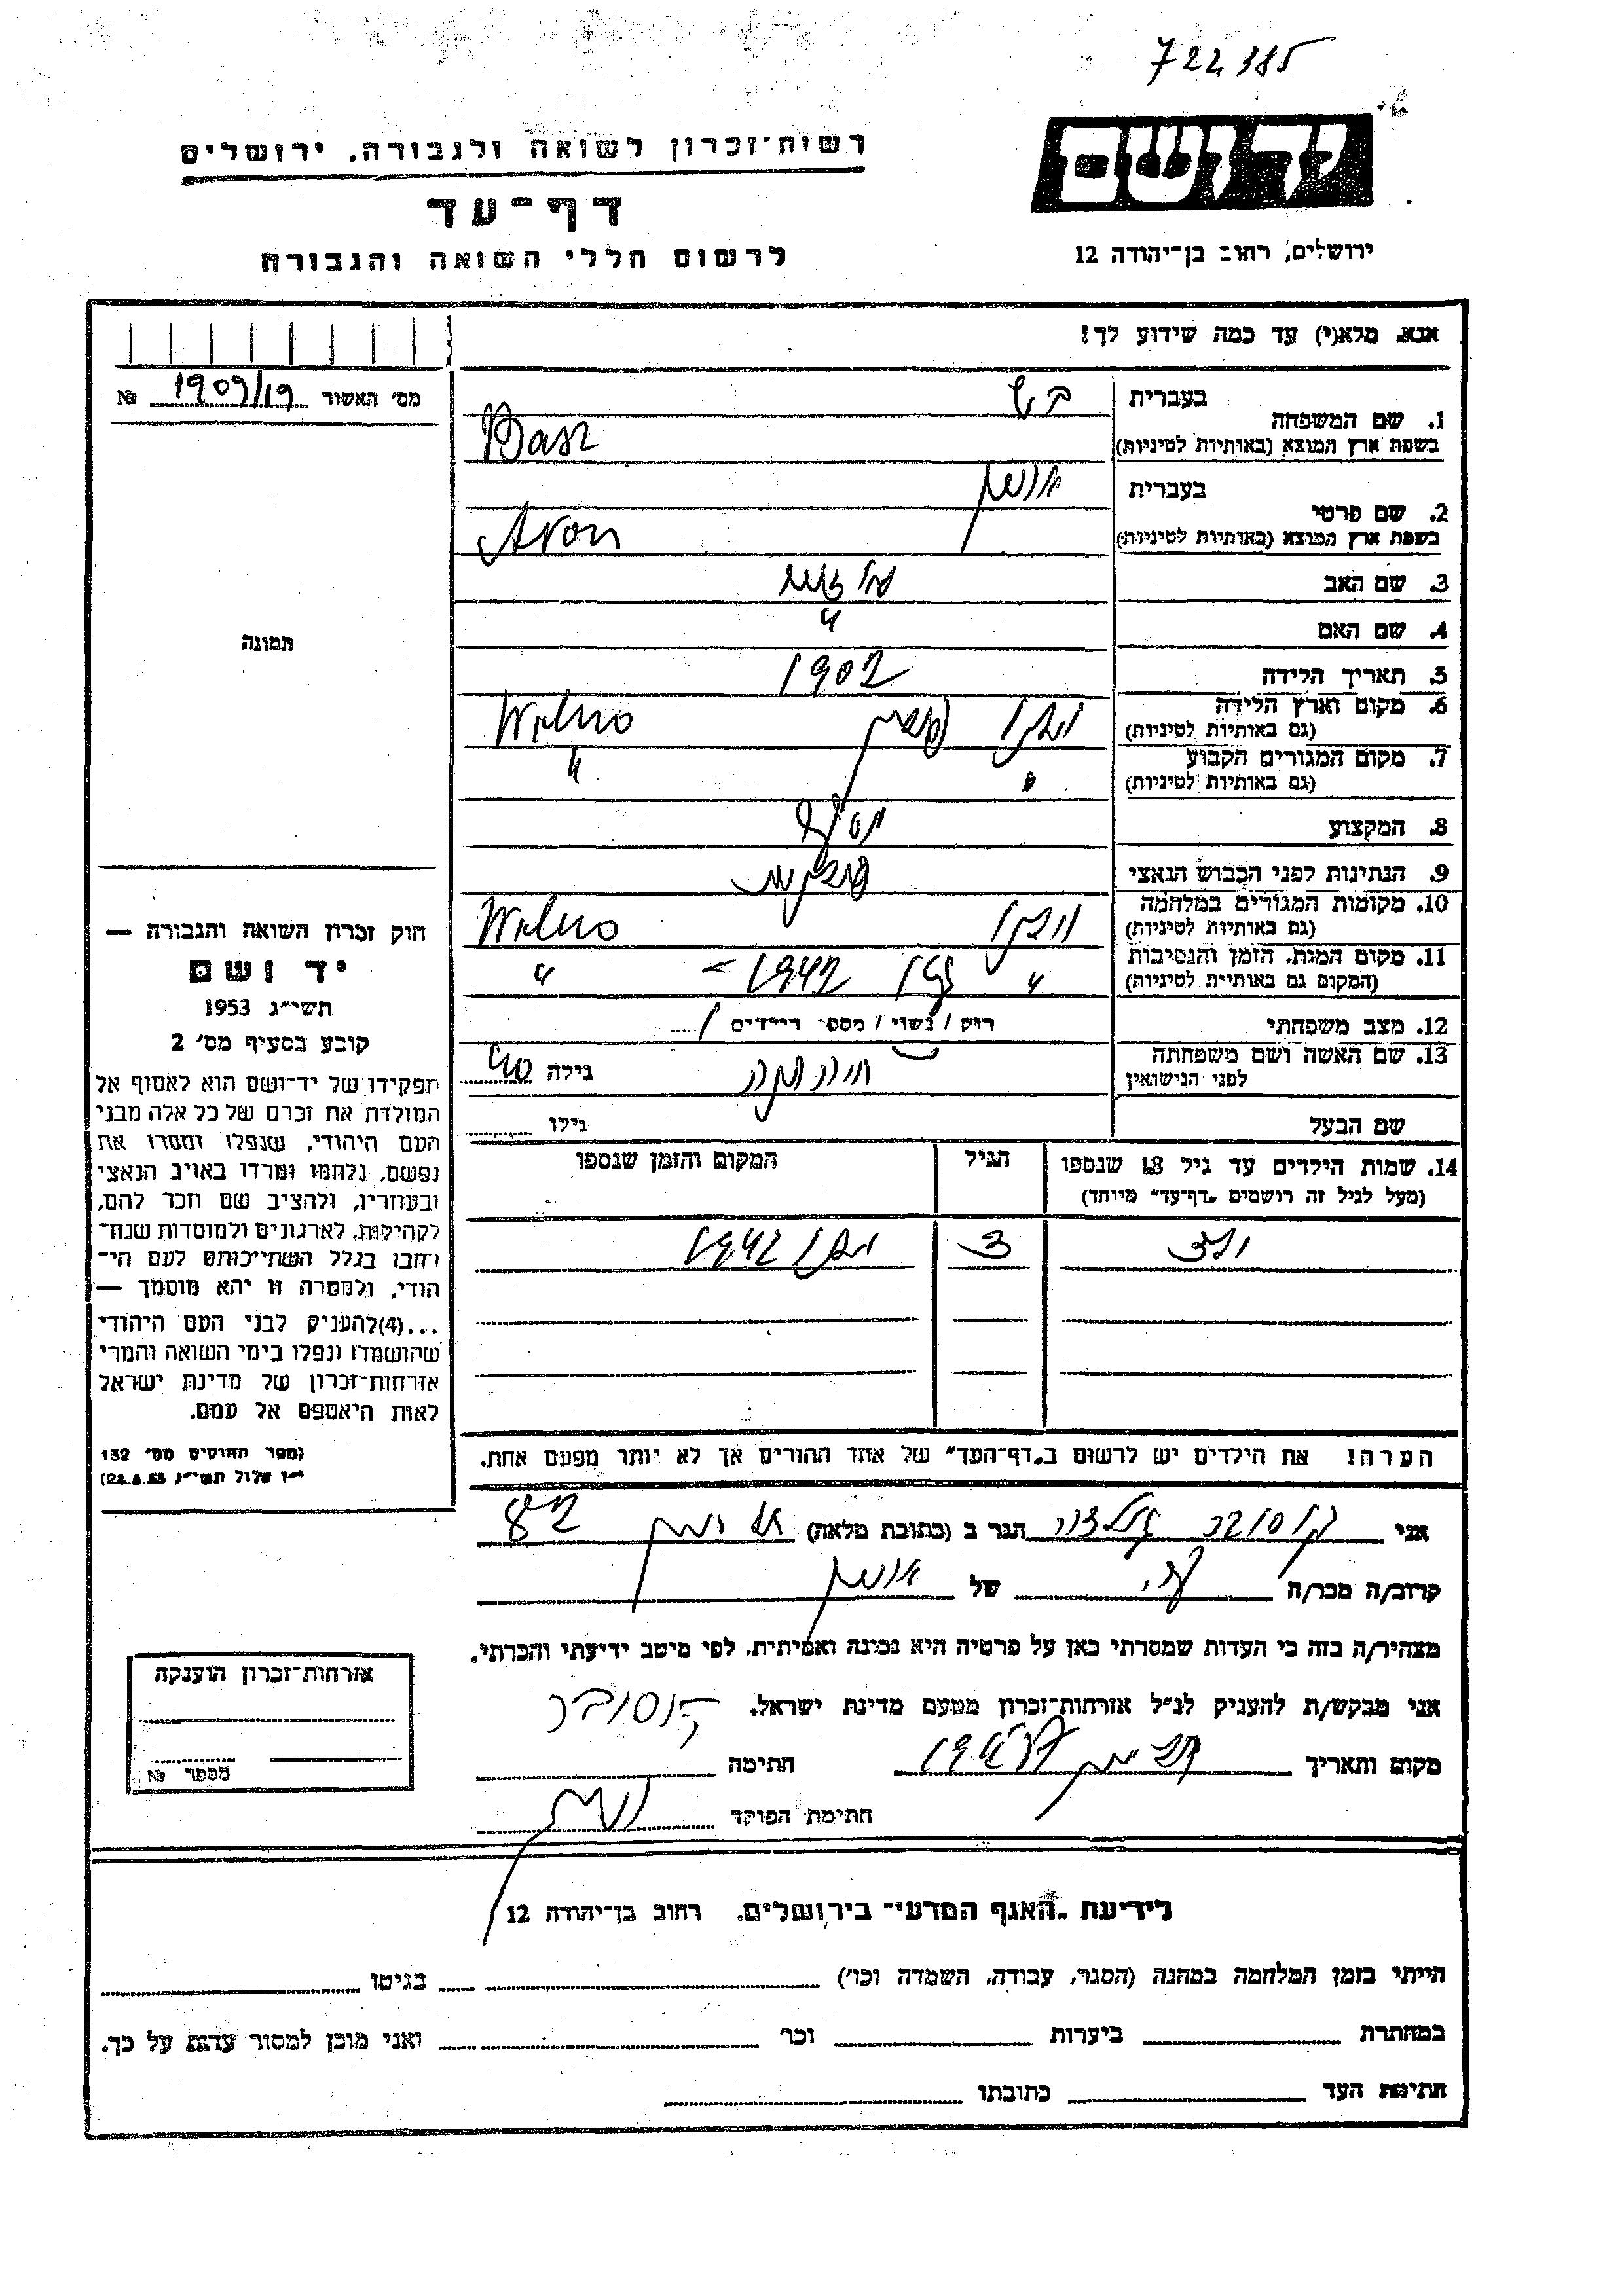 722385
יד ושם
רשות־זכרון לשואה ולגבורה, ירושלים
דף־עד
לרשום חללי השואה והגבורה
ירושלים, רחוב בן־יהודה 12
אנא, מלא(י) עד כמה שידוע לך!
מס' האשור 1909/19 №
1. שם המשפחה
בעברית בש
בשפת ארץ המוצא (באותיות לטיניות) Basz
2. שם פרטי
בעברית אהרון
בשפת ארץ המוצא (באותיות לטיניות) Aron
3. שם האב
4. שם האם "
5. תאריך הלידה 1902
6. מקום וארץ הלידה
(גם באותיות לטיניות) וילנו פולין Wilno
7. מקום המגורים הקבוע
(גם באותיות לטיניות) " "
8. המקצוע
9. הנתינות לפני הכבוש הנאצי פולנית
10. מקומות המגורים במלחמה
(גם באותיות לטיניות) וילנו Wilno
11. מקום המות, הזמן והנסיבות
(המקום גם באותיות לטיניות) " גטו 1942 "
12. מצב משפחתי רוק / נשוי / מספ' הילדים 1
13. שם האשה ושם משפחתה
לפני הנישואין גילה
שם הבעל גילו
14. שמות הילדים עד גיל 18 שנספו
(מעל לגיל זה רושמים „דף־עד" מיוחד)
הגיל
המקום והזמן שנספו
ילד 3 וילנו 1942
הערה! את הילדים יש לרשום ב„דף־העד" של אחד ההורים אך לא יותר מפעם אחת.
תמונה
חוק זכרון השואה והגבורה —
יד ושם
תשי״ג 1953
קובע בסעיף מס' 2
תפקידו של יד־ושם הוא לאסוף אל
המולדת את זכרם של כל אלה מבני
העם היהודי, שנפלו ומסרו את
נפשם, נלחמו ומרדו באויב הנאצי
ובעוזריו, ולהציב שם וזכר להם,
לקהילות, לארגונים ולמוסדות שנח־
רבו בגלל השתייכותם לעם הי־
הודי, ולמטרה זו יהא מוסמך —
...(4)להעניק לבני העם היהודי
שהושמדו ונפלו בימי השואה והמרי
אזרחות־זכרון של מדינת ישראל
לאות היאספם אל עמם.
(ספר החוקים מס' 132
י״ז אלול תשי״ג 28.8.53)
אני הגר ב (כתובת מלאה)
קרוב/ה מכר/ה של אהרון
מצהיר/ה בזה כי העדות שמסרתי כאן על פרטיה היא נכונה ואמיתית, לפי מיטב ידיעתי והכרתי.
אני מבקש/ת להעניק לנ״ל אזרחות־זכרון מטעם מדינת ישראל.
מקום ותאריך חתימה
חתימת הפוקד
אזרחות־זכרון הוענקה
מספר №
לידיעת „האגף המדעי" בירושלים, רחוב בן־יהודה 12
הייתי בזמן המלחמה במחנה (הסגר, עבודה, השמדה וכו') בגיטו
במחתרת ביערות וכו' ואני מוכן למסור עדות על כך.
חתימת העד כתובתו